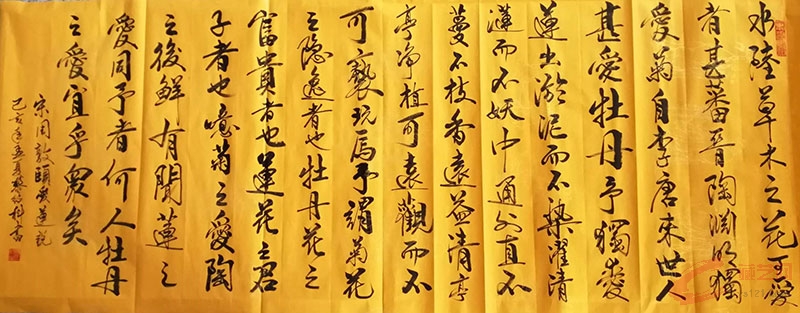 水陸草木之花可愛
者甚蕃晉陶淵明獨
愛菊自李唐來世人
甚愛牡丹予獨愛
蓮出淤泥而不染濯清
漣而不妖中通外直不
蔓不枝香遠益清亭
亭净植可遠觀而不
可褻玩焉予謂菊花
之隐逸者也牡丹花之
富貴者也蓮花之君
子者也噫菊之愛陶
之後鮮有聞蓮之
愛同予者何人牡丹
之愛宜乎眾矣
宋周敦頤愛蓮說
己亥年孟夏書